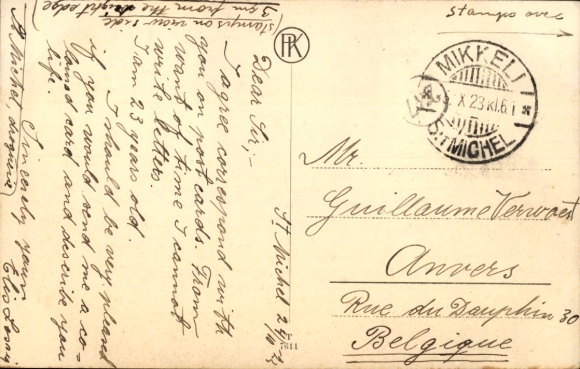 (stamps on view side
3 cm from the right edge
St Michel 24/11 23
Dear Sir;-
I agree correspond with
you on postcards. From
want of time I cannot
write letters.
I am 23 years old.
I should be very pleased
if you would send me a co-
loured card and describe you
life.
Sincerely yours
St Michel,
PK
Stamps over
MIKKELI
X.23.KL.6.
S:T MICHEL
Mr.
Guillaume Verwaest
Anvers
Rue du Dauphin 30
Belgique
7611